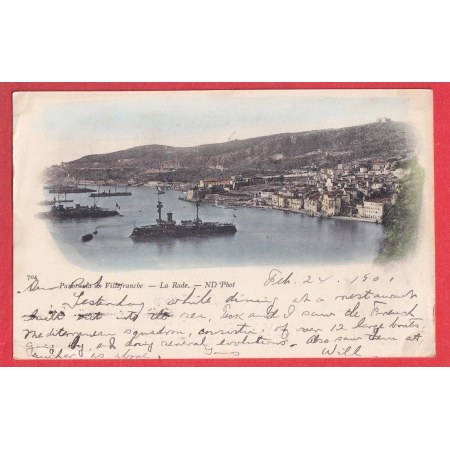 704
Panorama de Villefranche — La Rade. — ND Phot
Feb. 24. 1901
Dear
Yesterday while dining at a restaurant
built out into the sea, Jack and I saw the French
Mediterranean squadron, consisting of over 12 large boats,
going by and doing several evolutions. Also saw them at
anchor as above. Yours
Will